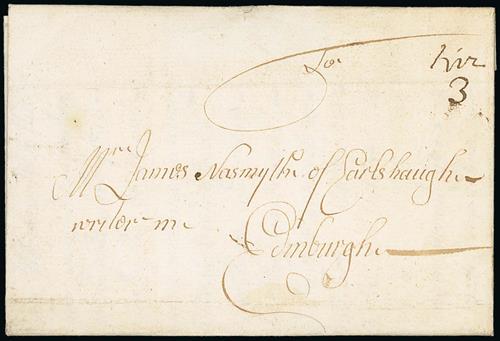 To
3
Mr James Nasmyth of Earlshaugh
writer in
Edinburgh